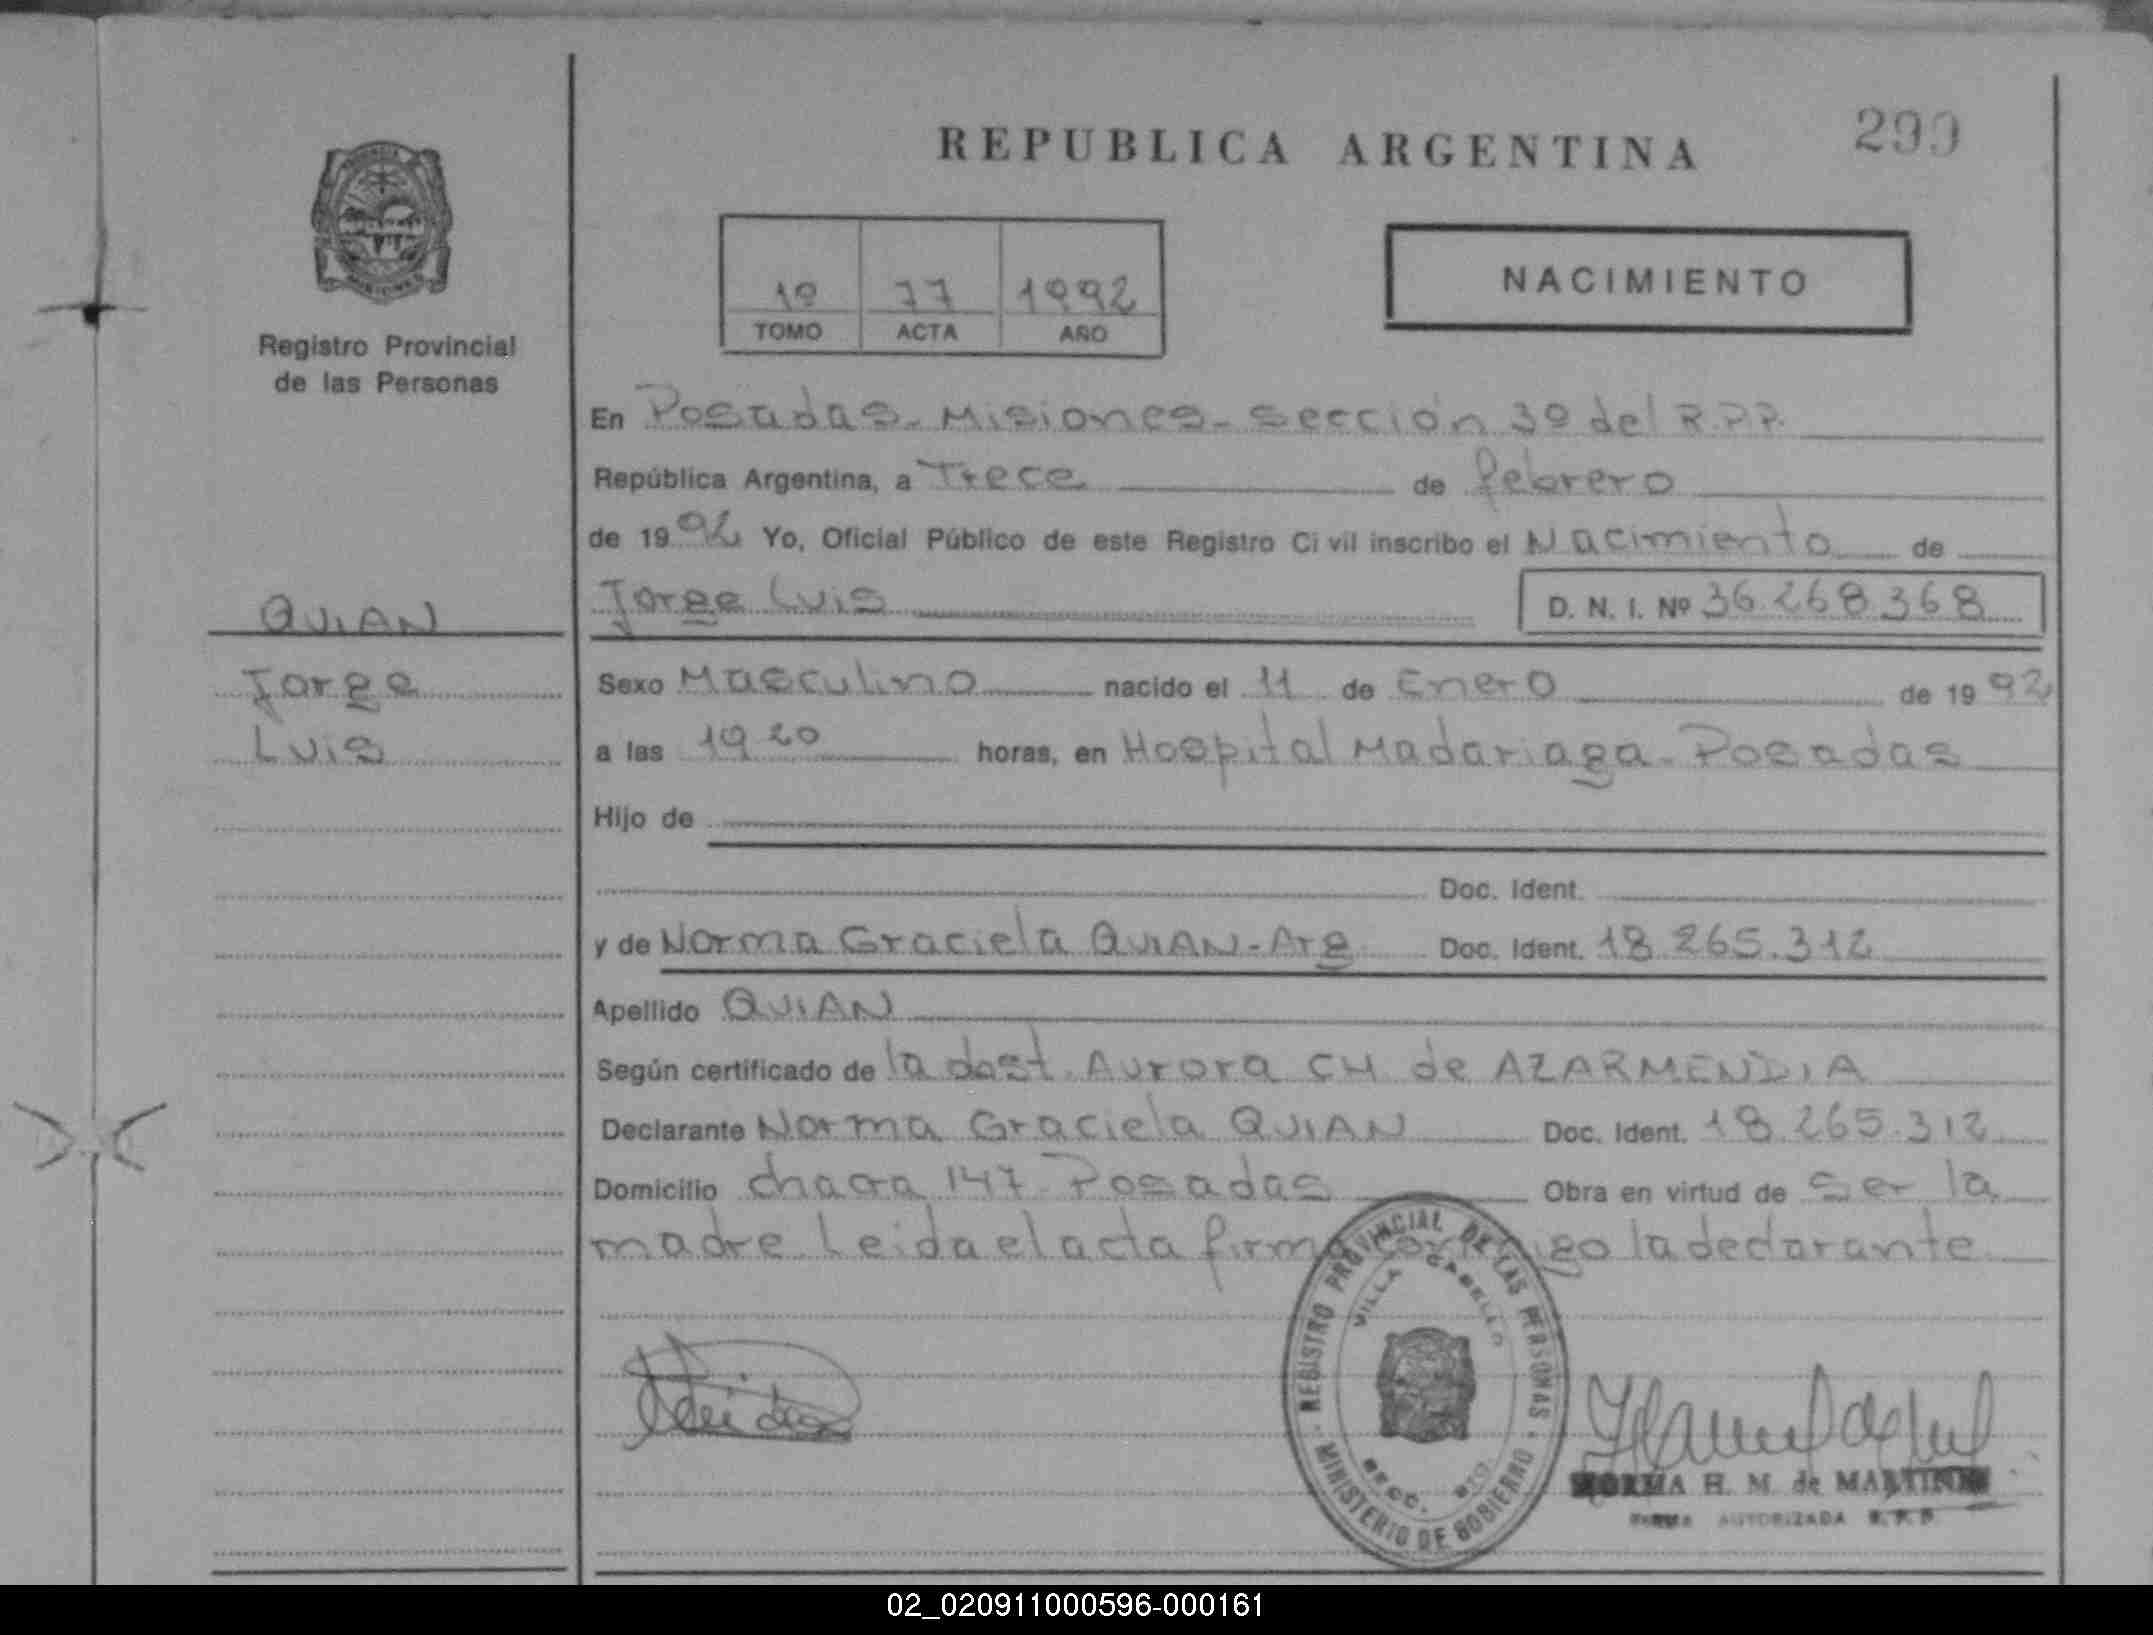 REPUBLICA ARGENTINA
299
Registro Provincial
de las Personas
1º 77 1992
TOMO ACTA AÑO
NACIMIENTO
En Posadas - Misiones - Sección 3º del R.P.P.
República Argentina, a Trece de febrero
de 1992 Yo, Oficial Público de este Registro Civil inscribo el Nacimiento de
Jorge Luis D. N. I. Nº 36.268.368
QUIAN
Jorge
Luis
Sexo Masculino nacido el 11 de Enero de 1992
a las 19 20 horas, en Hospital Madariaga - Posadas
Hijo de
Doc. Ident.
y de Norma Graciela QUIAN - Arg Doc. Ident. 18.265.312
Apellido QUIAN
Según certificado de la dost. Aurora CH de AZARMENDIA
Declarante Norma Graciela QUIAN Doc. Ident. 18.265.312
Domicilio chacra 147 - Posadas Obra en virtud de ser la
madre Leida el acta firma conmigo la declarante
REGISTRO PROVINCIAL DE LAS PERSONAS
VILLA CABELLO
SECC.
MINISTERIO DE GOBIERNO
NORMA H. M. de MARTINEZ
FIRMA AUTORIZADA R.P.P.
02_020911000596-000161